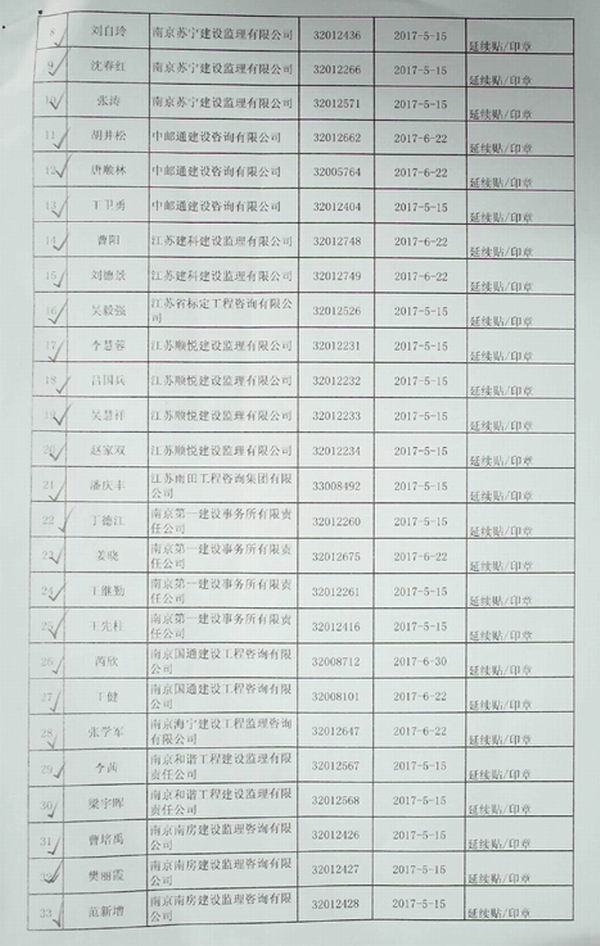 8 刘自玲 南京苏宁建设监理有限公司 32012436 2017-5-15 延续贴/印章
9 沈春红 南京苏宁建设监理有限公司 32012266 2017-5-15 延续贴/印章
10 张涛 南京苏宁建设监理有限公司 32012571 2017-5-15 延续贴/印章
11 胡井松 中邮通建设咨询有限公司 32012662 2017-6-22 延续贴/印章
12 唐顺林 中邮通建设咨询有限公司 32005764 2017-6-22 延续贴/印章
13 丁卫勇 中邮通建设咨询有限公司 32012404 2017-5-15 延续贴/印章
14 曹阳 江苏建科建设监理有限公司 32012748 2017-6-22 延续贴/印章
15 刘德景 江苏建科建设监理有限公司 32012749 2017-6-22 延续贴/印章
16 吴毅强 江苏省标定工程咨询有限公
司 32012526 2017-5-15 延续贴/印章
17 李慧蓉 江苏顺悦建设监理有限公司 32012231 2017-5-15 延续贴/印章
18 吕国兵 江苏顺悦建设监理有限公司 32012232 2017-5-15 延续贴/印章
19 吴慧祥 江苏顺悦建设监理有限公司 32012233 2017-5-15 延续贴/印章
20 赵家双 江苏顺悦建设监理有限公司 32012234 2017-5-15 延续贴/印章
21 潘庆丰 江苏雨田工程咨询集团有限
公司 33008492 2017-5-15 延续贴/印章
22 丁德江 南京第一建设事务所有限责
任公司 32012260 2017-5-15 延续贴/印章
23 姜晓 南京第一建设事务所有限责
任公司 32012675 2017-6-22 延续贴/印章
24 王继勤 南京第一建设事务所有限责
任公司 32012261 2017-5-15 延续贴/印章
25 王先柱 南京第一建设事务所有限责
任公司 32012416 2017-5-15 延续贴/印章
26 芮欣 南京国通建设工程咨询有限
公司 32008712 2017-6-30 延续贴/印章
27 健 南京国通建设工程咨询有限
公司 32008101 2017-6-22 延续贴/印章
28 张学军 南京海宁建设工程监理咨询
有限公司 32012647 2017-6-22 延续贴/印章
29 李茜 南京和谐工程建设监理有限
责任公司 32012567 2017-5-15 延续贴/印章
30 梁宇晖 南京和谐工程建设监理有限
责任公司 32012568 2017-5-15 延续贴/印章
31 曹培禹 南京南房建设监理咨询有限
公司 32012426 2017-5-15 延续贴/印章
32 樊丽霞 南京南房建设监理咨询有限
公司 32012427 2017-5-15 延续贴/印章
33 范新增 南京南房建设监理咨询有限
公司 32012428 2017-5-15 延续贴/印章